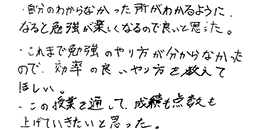 ・自分のわからなかった所がわかるように
なると勉強が楽しくなるので良いと思った。
・これまで勉強のやり方が分からなかった
ので、効率の良いやり方を教えて
ほしい。
・この授業を通して、成績も点数も
上げていきたいと思った。